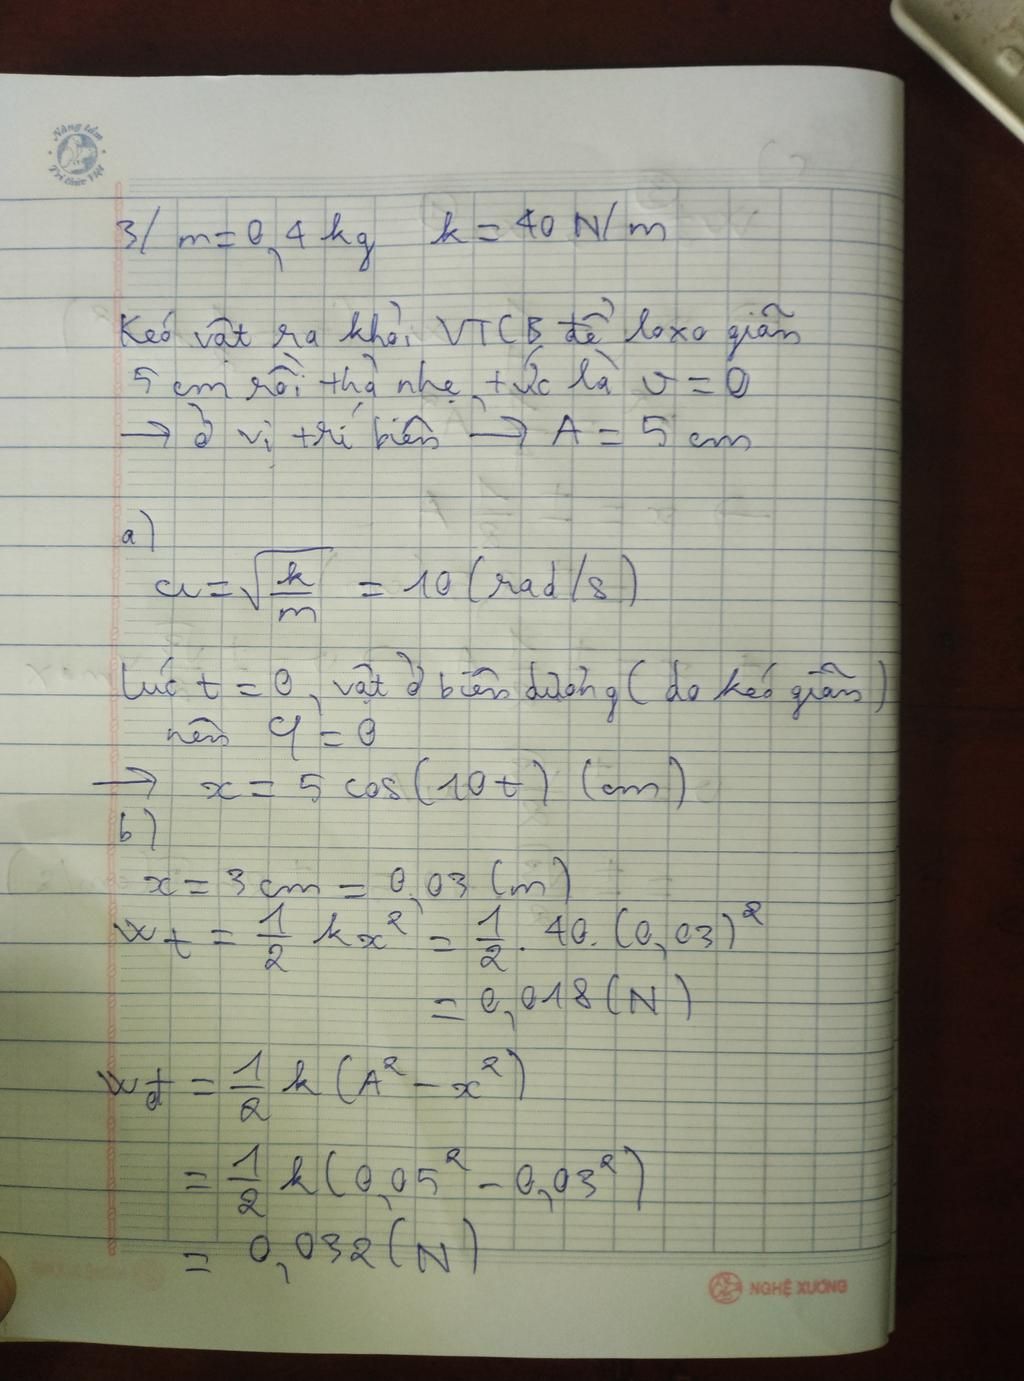 Nâng tầm
Tri thức Việt
3/ m=0,4 kg k=40 N/m
Kéo vật ra khỏi VTCB để loxo giãn
5 cm rồi thả nhẹ, tức là v=0
→ ở vị trí biên → A=5 cm
a)
ω=√(k/m) = 10 (rad/s)
Lúc t=0, vật ở biên dương (do kéo giãn)
nên φ=0
→ x=5 cos(10t) (cm)
b)
x=3cm=0,03 (m)
Wt = 1/2 kx² = 1/2 . 40. (0,03)²
= 0,018 (N)
Wđ = 1/2 k(A²-x²)
= 1/2 k(0,05²-0,03²)
= 0,032 (N)
NGHỆ XƯƠNG